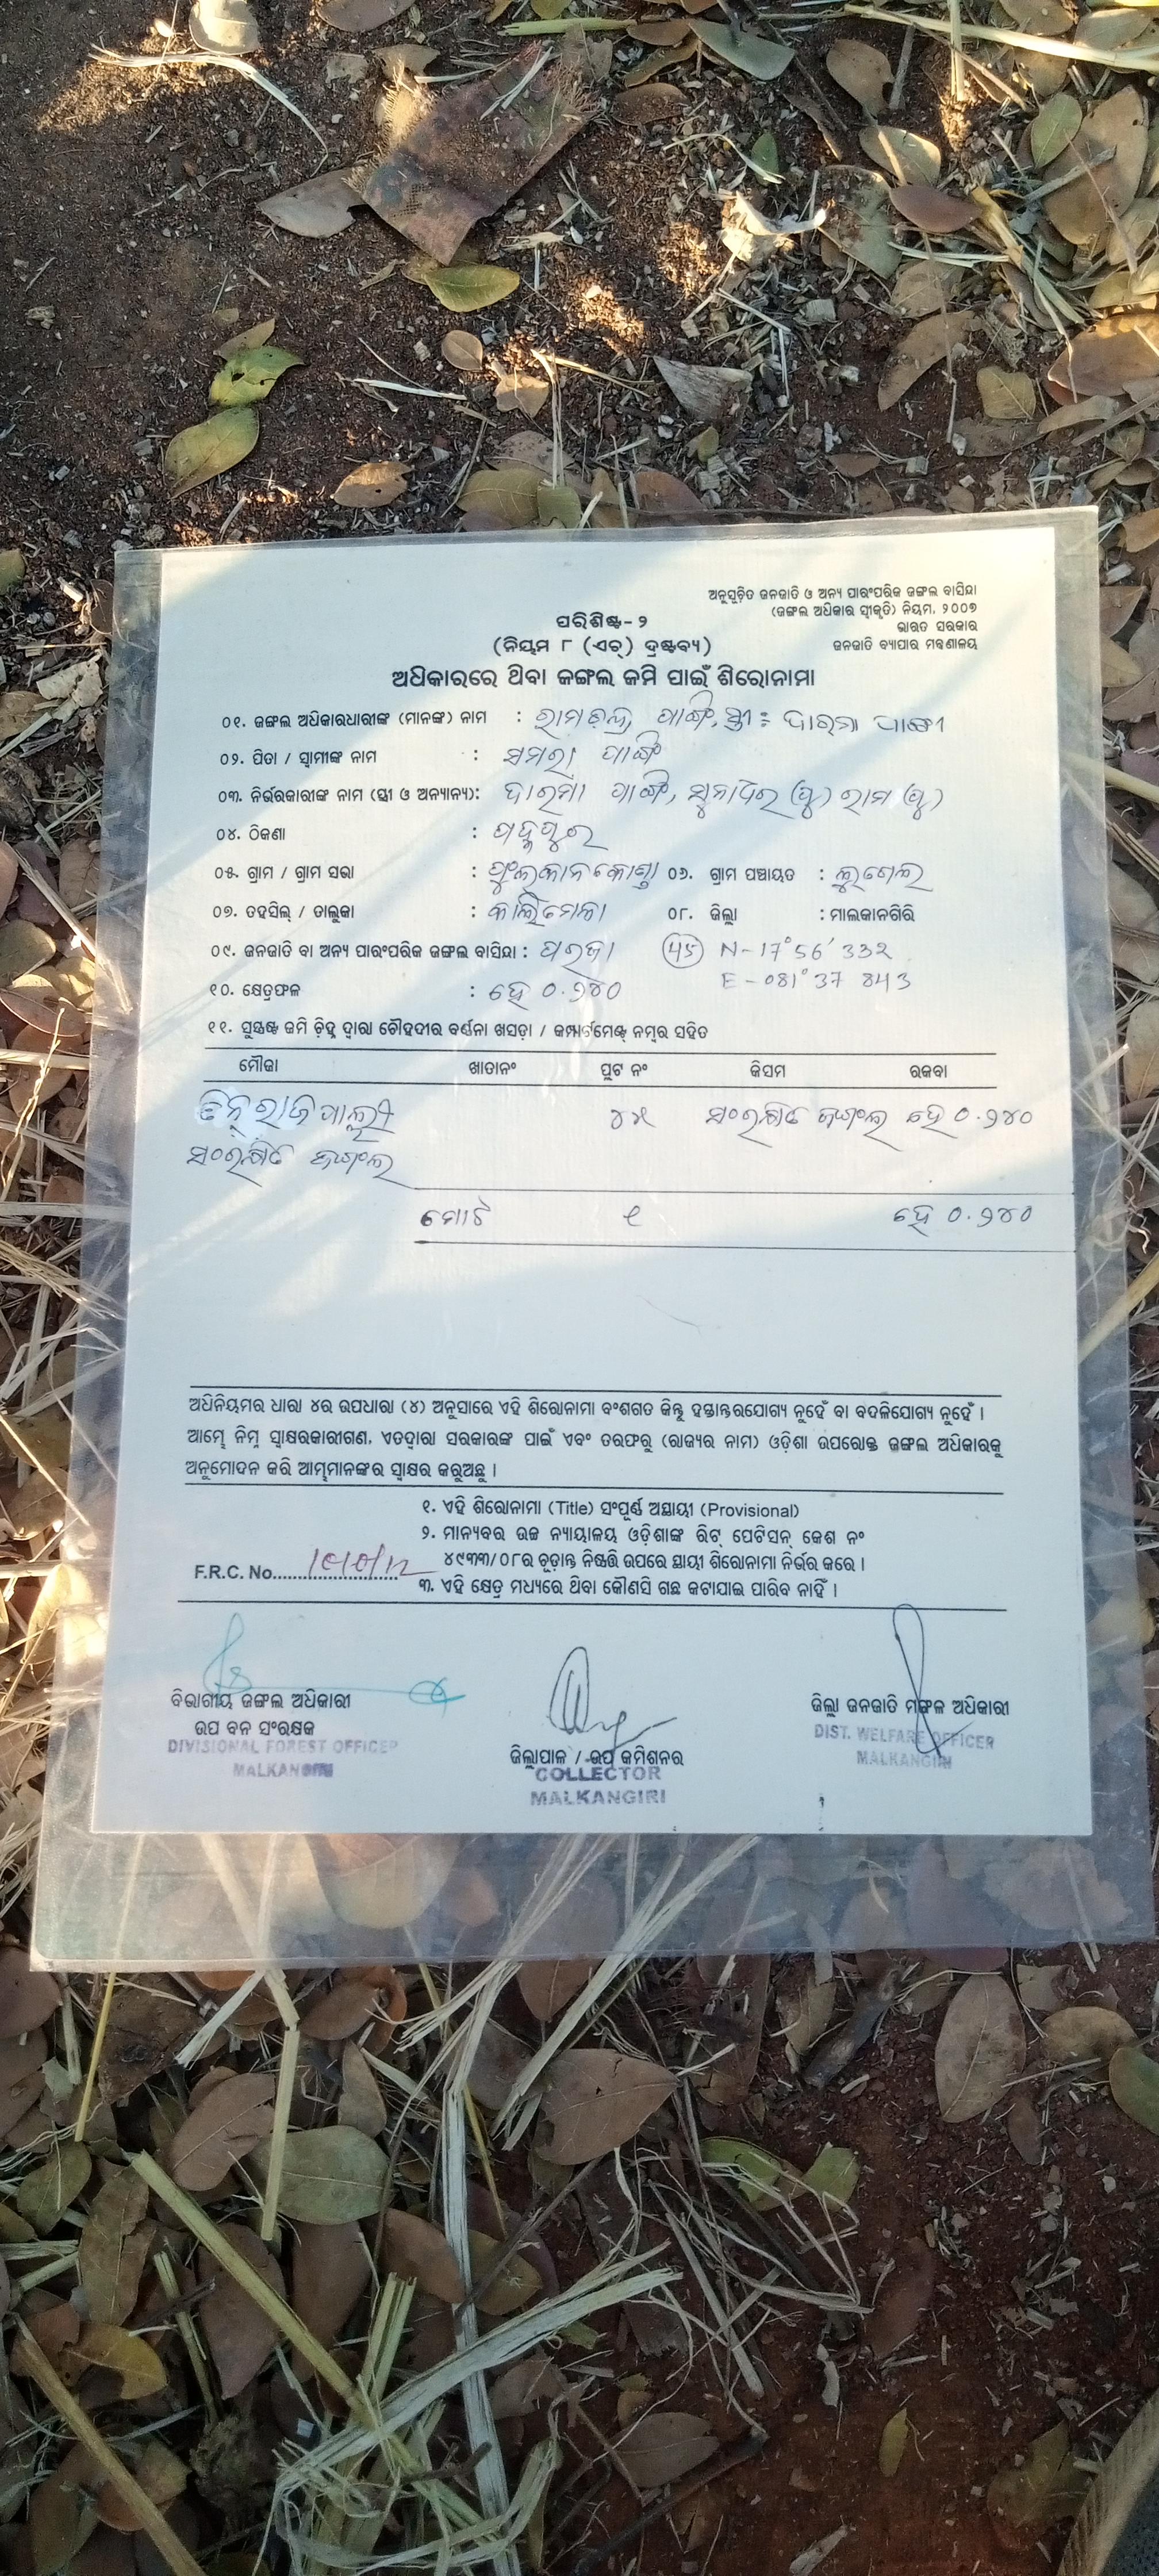 ଅନୁସୂଚିତ ଜନଜାତି ଓ ଅନ୍ୟ ପାରଂପରିକ ଜଙ୍ଗଲ ବାସିନ୍ଦା
(ଜଙ୍ଗଲ ଅଧିକାର ସ୍ୱୀକୃତି) ନିୟମ, ୨୦୦୭
ଭାରତ ସରକାର
ଜନଜାତି ବ୍ୟାପାର ମନ୍ତ୍ରଣାଳୟ
ପରିଶିଷ୍ଟ-୨
(ନିୟମ ୮ (ଏଚ୍) ଦ୍ରଷ୍ଟବ୍ୟ)
ଅଧିକାରରେ ଥିବା ଜଙ୍ଗଲ ଜମି ପାଇଁ ଶିରୋନାମା
୦୧. ଜଙ୍ଗଲ ଅଧିକାରଧାରୀଙ୍କ (ମାନଙ୍କ) ନାମ : ରାମଚନ୍ଦ୍ର ପାଙ୍ଗି, ସ୍ତ୍ରୀ: ଦାଇମା ପାଙ୍ଗୀ
୦୨. ପିତା / ସ୍ୱାମୀଙ୍କ ନାମ : ସମରା ପାଙ୍ଗି
୦୩. ନିର୍ଭରକାରୀଙ୍କ ନାମ (ସ୍ତ୍ରୀ ଓ ଅନ୍ୟାନ୍ୟ): ଦାଇମା ପାଙ୍ଗି, (ପୁ) ରାମ (ପୁ)
୦୪. ଠିକଣା : ପଦ୍ମପୁର
୦୫. ଗ୍ରାମ / ଗ୍ରାମ ସଭା : ୦୬. ଗ୍ରାମ ପଞ୍ଚାୟତ :
୦୭. ତହସିଲ୍ / ତାଲୁକା : କାଲିମେଳା ୦୮. ଜିଲ୍ଲା : ମାଲକାନଗିରି
୦୯. ଜନଜାତି ବା ଅନ୍ୟ ପାରଂପରିକ ଜଙ୍ଗଲ ବାସିନ୍ଦା : ପରଜା (45) N-17°56′332
E-081°37 843
୧୦. କ୍ଷେତ୍ରଫଳ : ହେ ୦.୨୪୦
୧୧. ସୁସ୍ପଷ୍ଟ ଜମି ଚିହ୍ନ ଦ୍ୱାରା ଚୌହଦୀର ବର୍ଣ୍ଣନା ଖସଡ଼ା / କମ୍ପାର୍ଟମେଣ୍ଟ ନମ୍ବର ସହିତ
ମୌଜା ଖାତାନଂ ପ୍ଲଟ ନଂ କିସମ ରକବା
ଚିନ୍ନରାଜପାଲ୍ଲୀ ୪୫ ସଂରକ୍ଷିତ ଜଙ୍ଗଲ ହେ ୦.୨୪୦
ସଂରକ୍ଷିତ ଜଙ୍ଗଲ
ମୋଟ ୧ ହେ ୦.୨୪୦
ଅଧିନିୟମର ଧାରା ୪ର ଉପଧାରା (୪) ଅନୁସାରେ ଏହି ଶିରୋନାମା ବଂଶଗତ କିନ୍ତୁ ହସ୍ତାନ୍ତରଯୋଗ୍ୟ ନୁହେଁ ବା ବଦଳିଯୋଗ୍ୟ ନୁହେଁ ।
ଆମ୍ଭେ ନିମ୍ନ ସ୍ୱାକ୍ଷରକାରୀଗଣ, ଏତଦ୍ୱାରା ସରକାରଙ୍କ ପାଇଁ ଏବଂ ତରଫରୁ (ରାଜ୍ୟର ନାମ) ଓଡ଼ିଶା ଉପରୋକ୍ତ ଜଙ୍ଗଲ ଅଧିକାରକୁ
ଅନୁମୋଦନ କରି ଆମ୍ଭମାନଙ୍କର ସ୍ୱାକ୍ଷର କରୁଅଛୁ ।
୧. ଏହି ଶିରୋନାମା (Title) ସଂପୂର୍ଣ୍ଣ ଅସ୍ଥାୟୀ (Provisional)
୨. ମାନ୍ୟବର ଉଚ୍ଚ ନ୍ୟାୟାଳୟ ଓଡ଼ିଶାଙ୍କ ରିଟ୍ ପେଟିସନ୍ କେଶ ନଂ
୪୯୩୩/୦୮ର ଚୂଡ଼ାନ୍ତ ନିଷ୍ପତ୍ତି ଉପରେ ସ୍ଥାୟୀ ଶିରୋନାମା ନିର୍ଭର କରେ ।
F.R.C. No
୩. ଏହି କ୍ଷେତ୍ର ମଧ୍ୟରେ ଥିବା କୌଣସି ଗଛ କଟାଯାଇ ପାରିବ ନାହିଁ ।
ବିଭାଗୀୟ ଜଙ୍ଗଲ ଅଧିକାରୀ
ଉପ ବନ ସଂରକ୍ଷକ
DIVISIONAL FOREST OFFICER
MALKANGIRI
ଜିଲ୍ଲାପାଳ / ଉପ କମିଶନର
COLLECTOR
MALKANGIRI
ଜିଲ୍ଲା ଜନଜାତି ମଙ୍ଗଳ ଅଧିକାରୀ
DIST. WELFARE OFFICER
MALKANGIRI